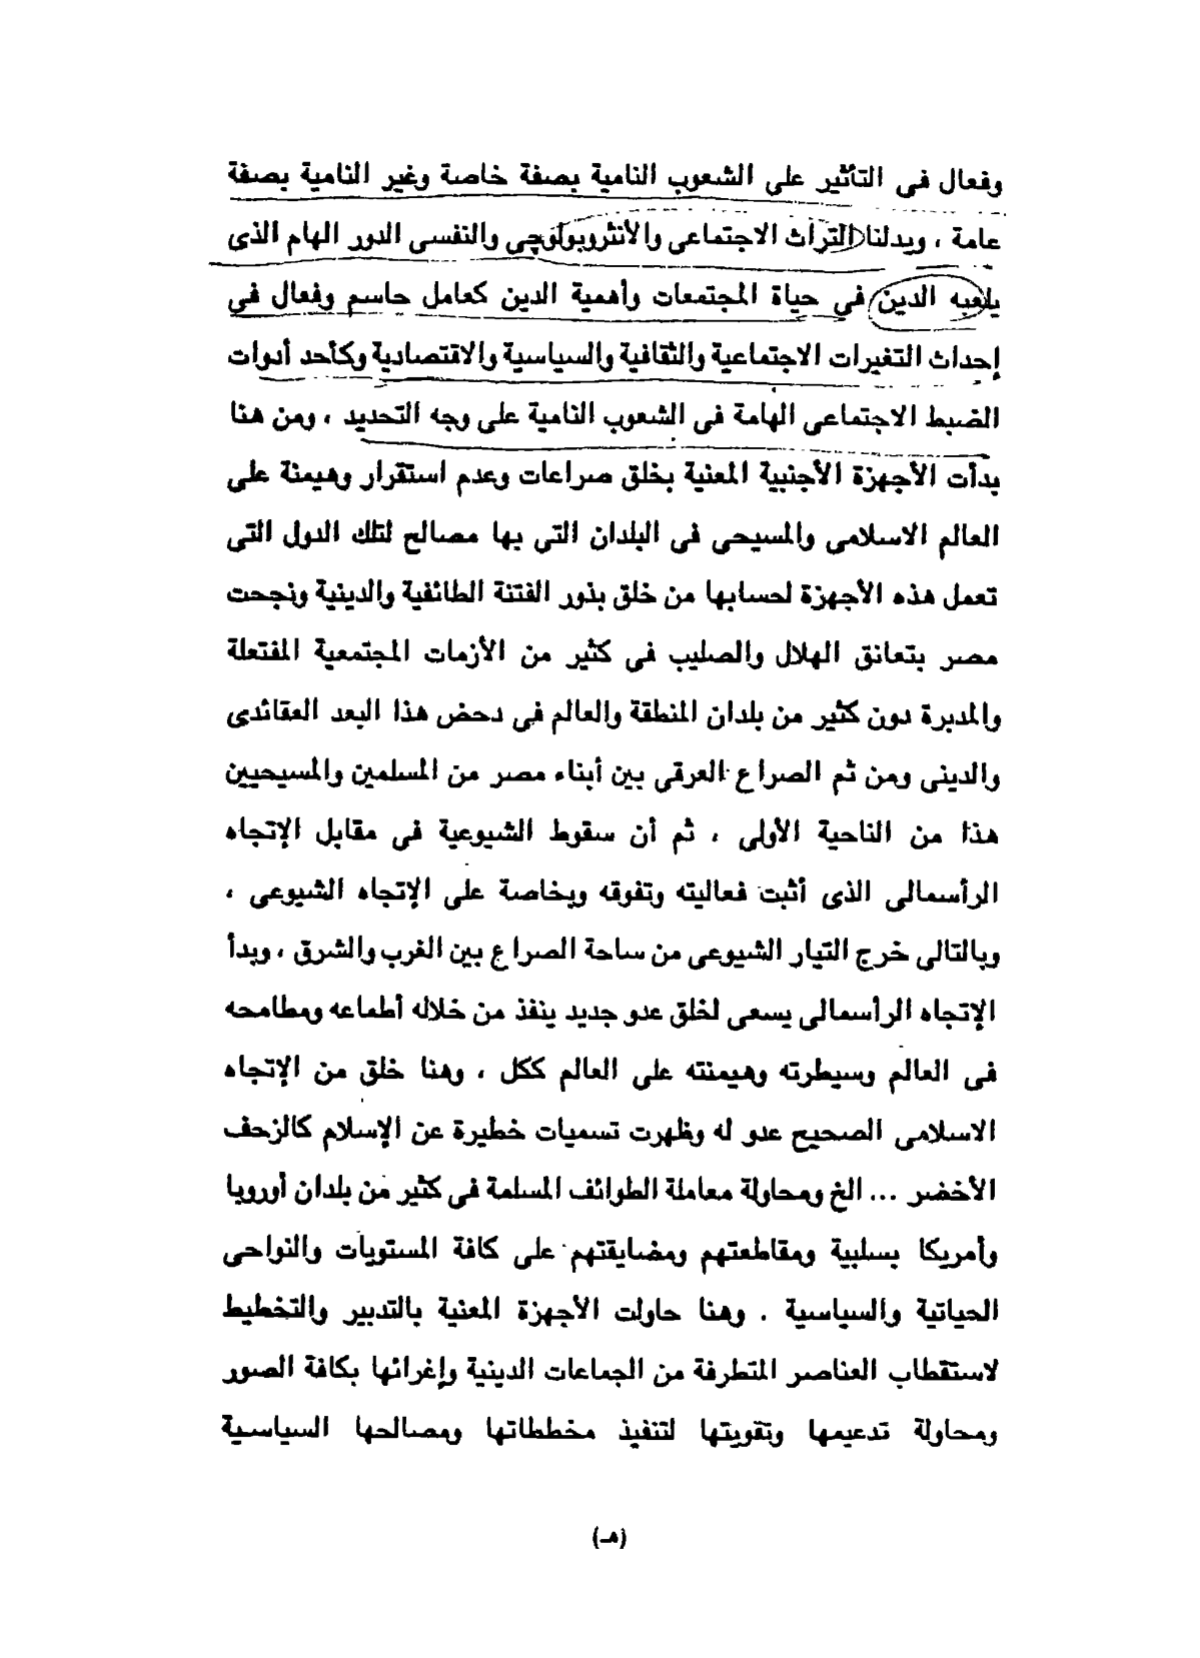 وفعال فى التأثير على الشعوب النامية بصفة خاصة وغير النامية بصفة
عامة ، ويدلنا التراث الاجتماعى والأنثروبولوچى والنفسى الدور الهام الذى
يلعبه الدين فى حياة المجتمعات وأهمية الدين كعامل حاسم وفعال فى
إحداث التغيرات الاجتماعية والثقافية والسياسية والاقتصادية وكأحد أدوات
الضبط الاجتماعى الهامة فى الشعوب النامية على وجه التحديد ، ومن هنا
بدأت الأجهزة الأجنبية المعنية بخلق صراعات وعدم استقرار وهيمنة على
العالم الاسلامى والمسيحى فى البلدان التى بها مصالح لتلك الدول التى
تعمل هذه الأجهزة لحسابها من خلق بذور الفتنة الطائفية والدينية ونجحت
مصر بتعانق الهلال والصليب فى كثير من الأزمات المجتمعية المفتعلة
والمدبرة دون كثير من بلدان المنطقة والعالم فى دحض هذا البعد العقائدى
والدينى ومن ثم الصراع العرقى بين أبناء مصر من المسلمين والمسيحيين
هذا من الناحية الأولى ، ثم أن سقوط الشيوعية فى مقابل الإتجاه
الرأسمالى الذى أثبت فعاليته وتفوقه وبخاصة على الإتجاه الشيوعى ،
وبالتالى خرج التيار الشيوعى من ساحة الصراع بين الغرب والشرق ، وبدأ
الإتجاه الرأسمالى يسعى لخلق عدو جديد ينفذ من خلاله أطماعه ومطامحه
فى العالم وسيطرته وهيمنته على العالم ككل ، وهنا خلق من الإتجاه
الاسلامى الصحيح عدو له وظهرت تسميات خطيرة عن الإسلام كالزحف
الأخضر ... الخ ومحاولة معاملة الطوائف المسلمة فى كثير من بلدان أوروبا
وأمريكا بسلبية ومقاطعتهم ومضايقتهم على كافة المستويات والنواحى
الحياتية والسياسية . وهنا حاولت الأجهزة المعنية بالتدبير والتخطيط
لاستقطاب العناصر المتطرفة من الجماعات الدينية وإغرائها بكافة الصور
ومحاولة تدعيمها وتقويتها لتنفيذ مخططاتها ومصالحها السياسية
(هـ)